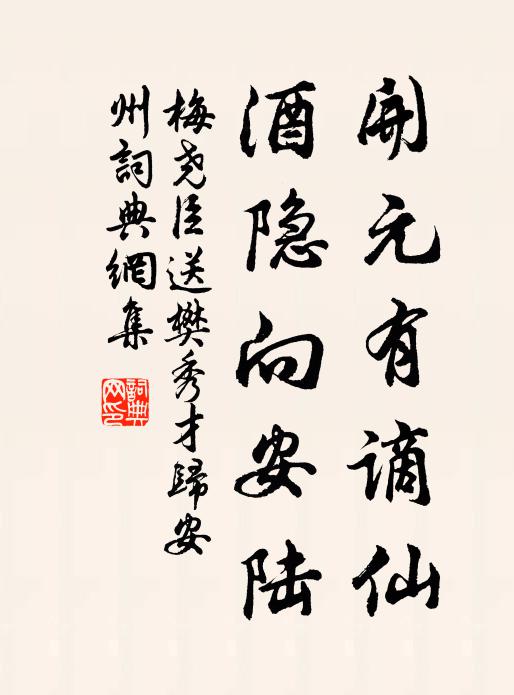 開元有谪仙
酒隐向安陆
梅尧臣送樊秀才歸安
州詞典網集
詞典网印